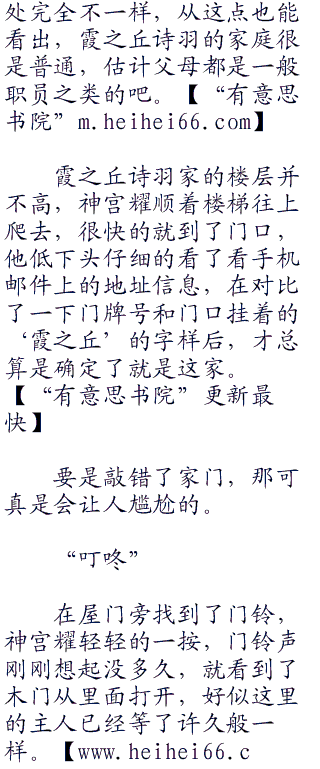 处完全不一样，从这点也能
看出，霞之丘诗羽的家庭很
是普通，估计父母都是一般
职员之类的吧。【“有意思
书院”m.heihei66.com】
霞之丘诗羽家的楼层并
不高，神宫耀顺着楼梯往上
爬去，很快的就到了门口，
他低下头仔细的看了看手机
邮件上的地址信息，在对比
了一下门牌号和门口挂着的
‘霞之丘’的字样后，才总
算是确定了就是这家。
【“有意思书院”更新最
快】
要是敲错了家门，那可
真是会让人尴尬的。
“叮咚”
在屋门旁找到了门铃，
神宫耀轻轻的一按，门铃声
刚刚想起没多久，就看到了
木门从里面打开，好似这里
的主人已经等了许久般一
样。【www.heihei66.c